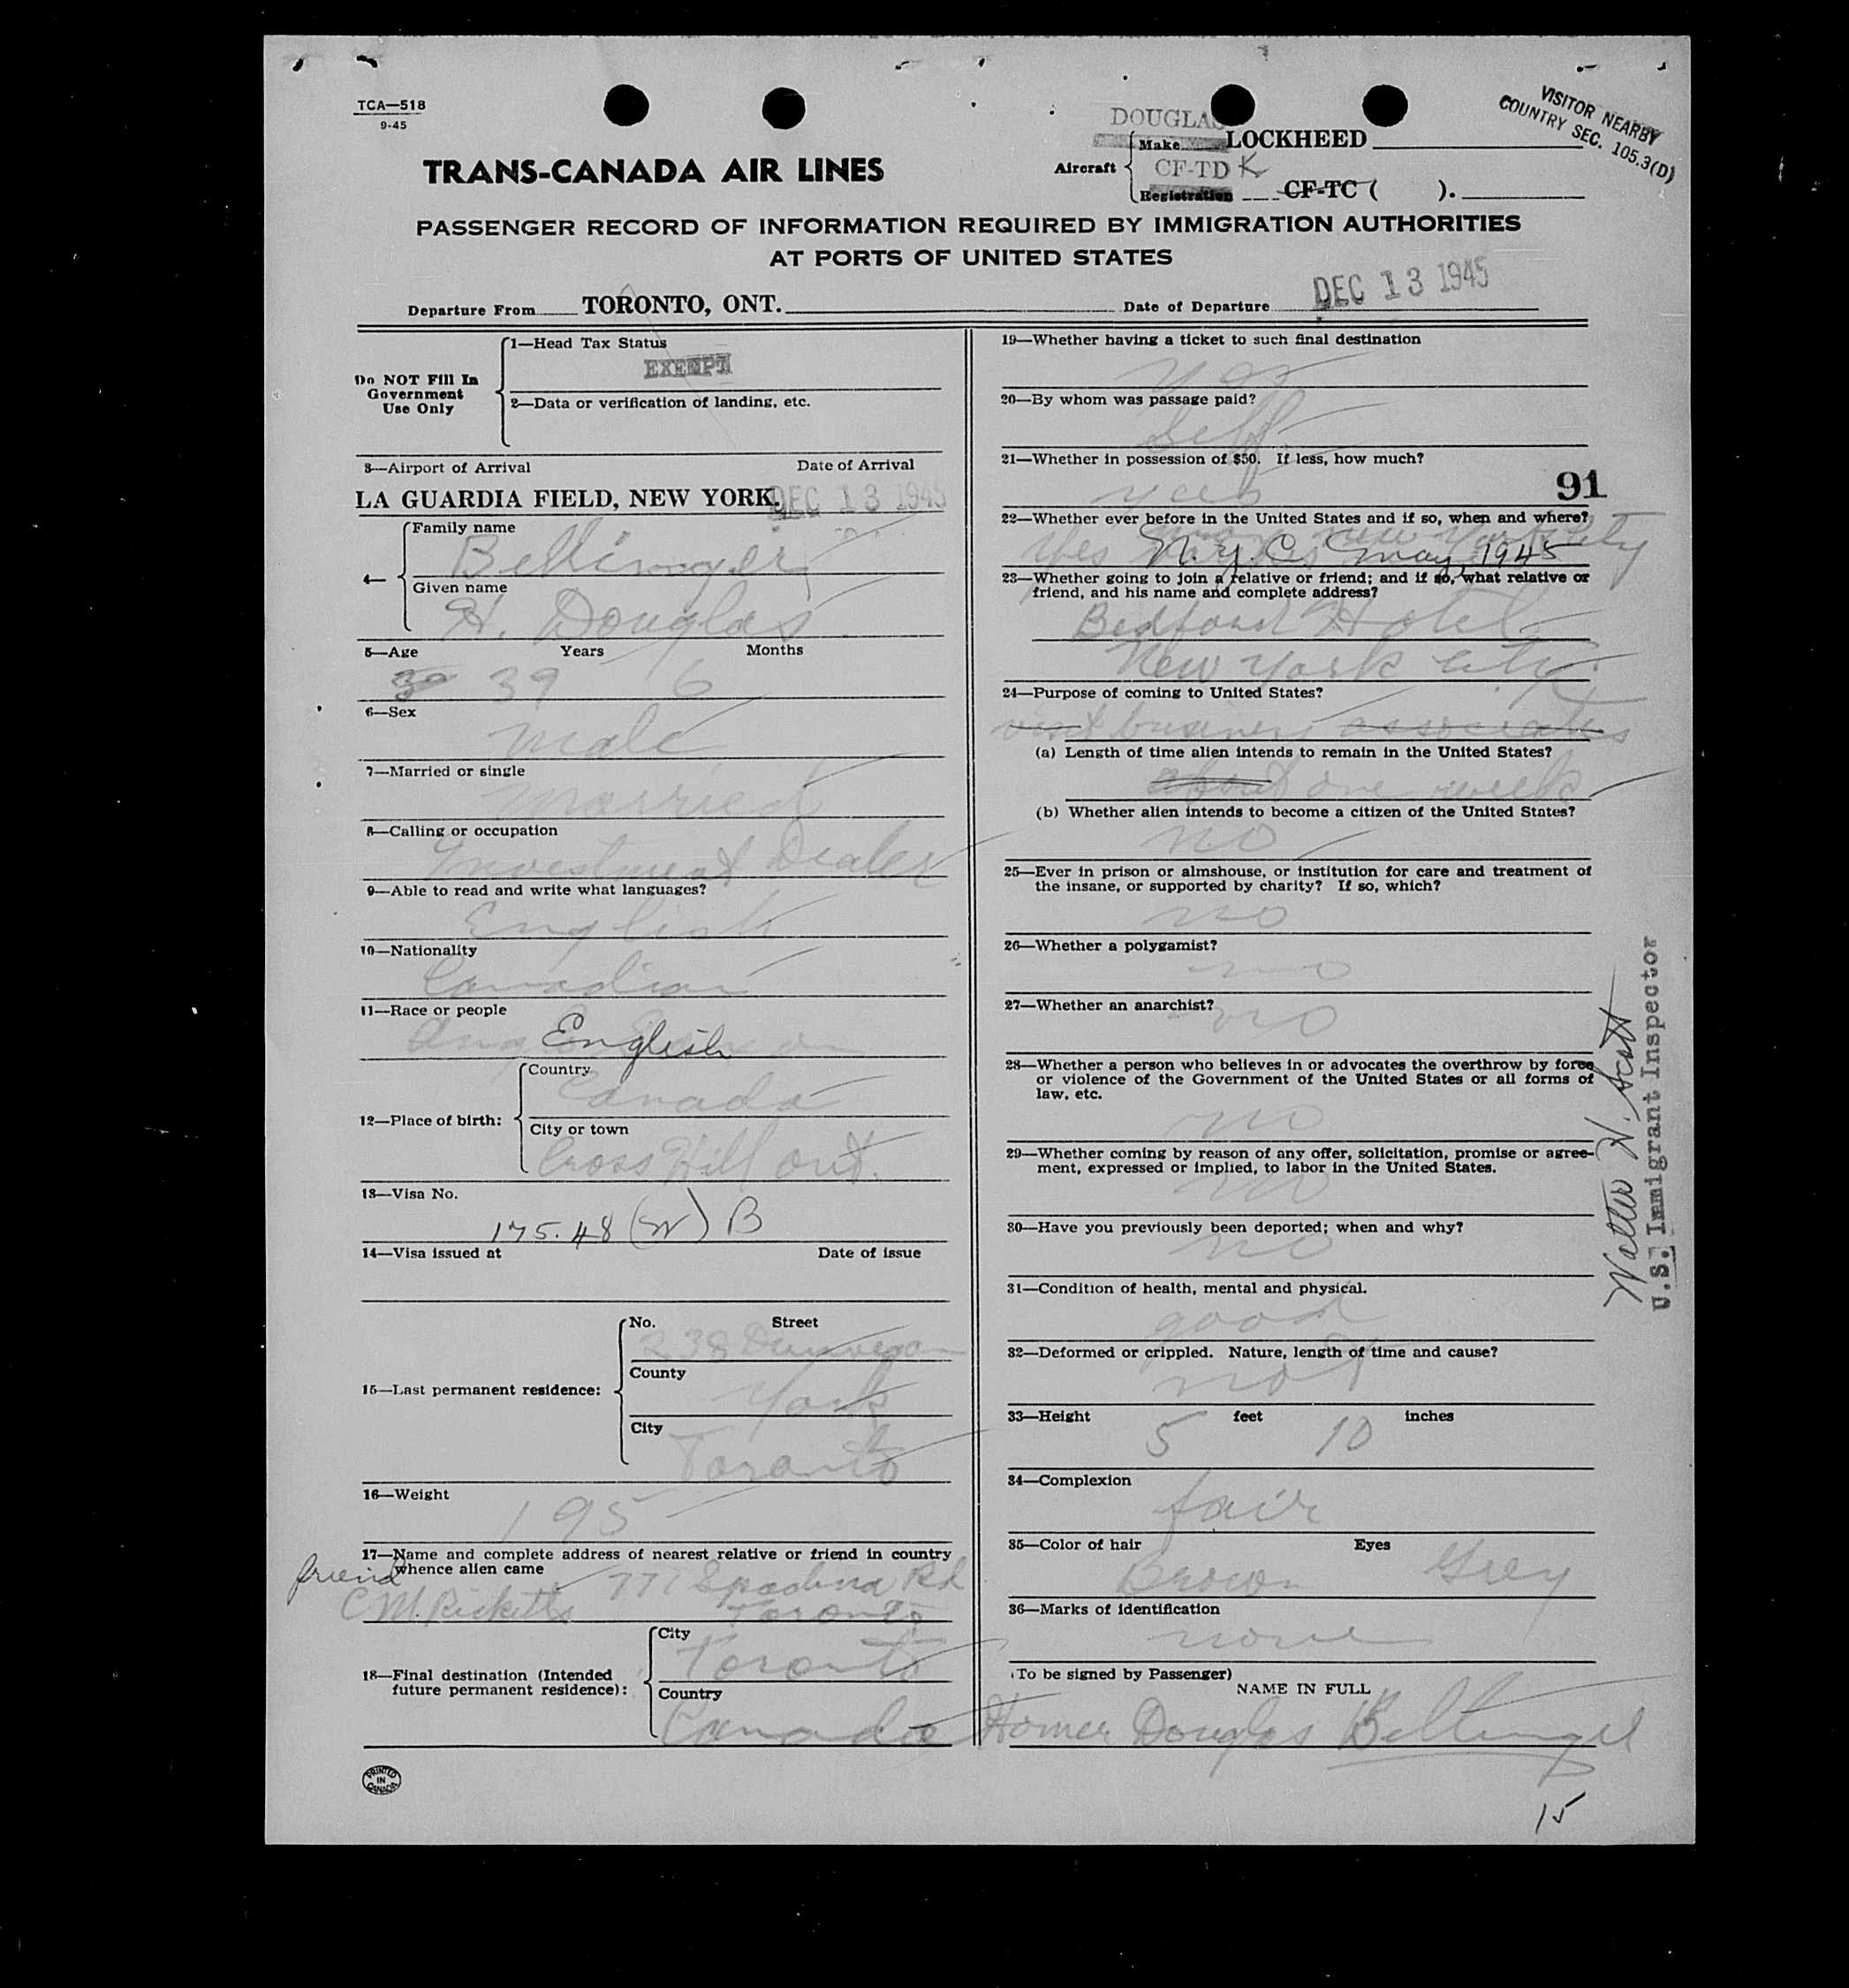 TCA—518
9-45
DOUGLAS
Make LOCKHEED
Aircraft
CF-TD K
Registration CF-TC ( ).
VISITOR NEARBY
COUNTRY SEC. 105.3(D)
TRANS-CANADA AIR LINES
PASSENGER RECORD OF INFORMATION REQUIRED BY IMMIGRATION AUTHORITIES
AT PORTS OF UNITED STATES
Departure From TORONTO, ONT. Date of Departure DEC 13 1945
Do NOT Fill In
Government
Use Only
1—Head Tax Status
EXEMPT
2—Data or verification of landing, etc.
3—Airport of Arrival Date of Arrival
LA GUARDIA FIELD, NEW YORK. DEC 13 1945
4—
Family name
Beltinger
Given name
H. Douglas
5—Age Years Months
39 6
6—Sex
male
7—Married or single
married
8—Calling or occupation
Investment Dealer
9—Able to read and write what languages?
English
10—Nationality
Canadian
11—Race or people
English
12—Place of birth:
Country
Canada
City or town
Cross Hill Ont.
13—Visa No.
175.48 (W) B
14—Visa issued at Date of issue
15—Last permanent residence:
No. Street
238 Dunvegan
County
York
City
Toronto
16—Weight
195
17—Name and complete address of nearest relative or friend in country
whence alien came
friend
C M. Ricketts 777 Spadina Rd
Toronto
18—Final destination (Intended
future permanent residence):
City
Toronto
Country
Canada
19—Whether having a ticket to such final destination
yes
20—By whom was passage paid?
Self
21—Whether in possession of $50. If less, how much?
yes
91
22—Whether ever before in the United States and if so, when and where?
Yes N. Y. C. May, 1945
23—Whether going to join a relative or friend; and if so, what relative or
friend, and his name and complete address?
Bedford Hotel
New York City.
24—Purpose of coming to United States?
visit business associates
(a) Length of time alien intends to remain in the United States?
about one week
(b) Whether alien intends to become a citizen of the United States?
no
25—Ever in prison or almshouse, or institution for care and treatment of
the insane, or supported by charity? If so, which?
no
26—Whether a polygamist?
no
27—Whether an anarchist?
no
28—Whether a person who believes in or advocates the overthrow by force
or violence of the Government of the United States or all forms of
law, etc.
no
29—Whether coming by reason of any offer, solicitation, promise or agree-
ment, expressed or implied, to labor in the United States.
no
30—Have you previously been deported; when and why?
no
31—Condition of health, mental and physical.
good
32—Deformed or crippled. Nature, length of time and cause?
not
33—Height 5 feet 10 inches
34—Complexion
fair
35—Color of hair Eyes
Brown Grey
36—Marks of identification
none
(To be signed by Passenger)
NAME IN FULL
Homer Douglas Beltinger
Walter H. Scott
U.S. Immigrant Inspector
PRINTED
IN
CANADA
15